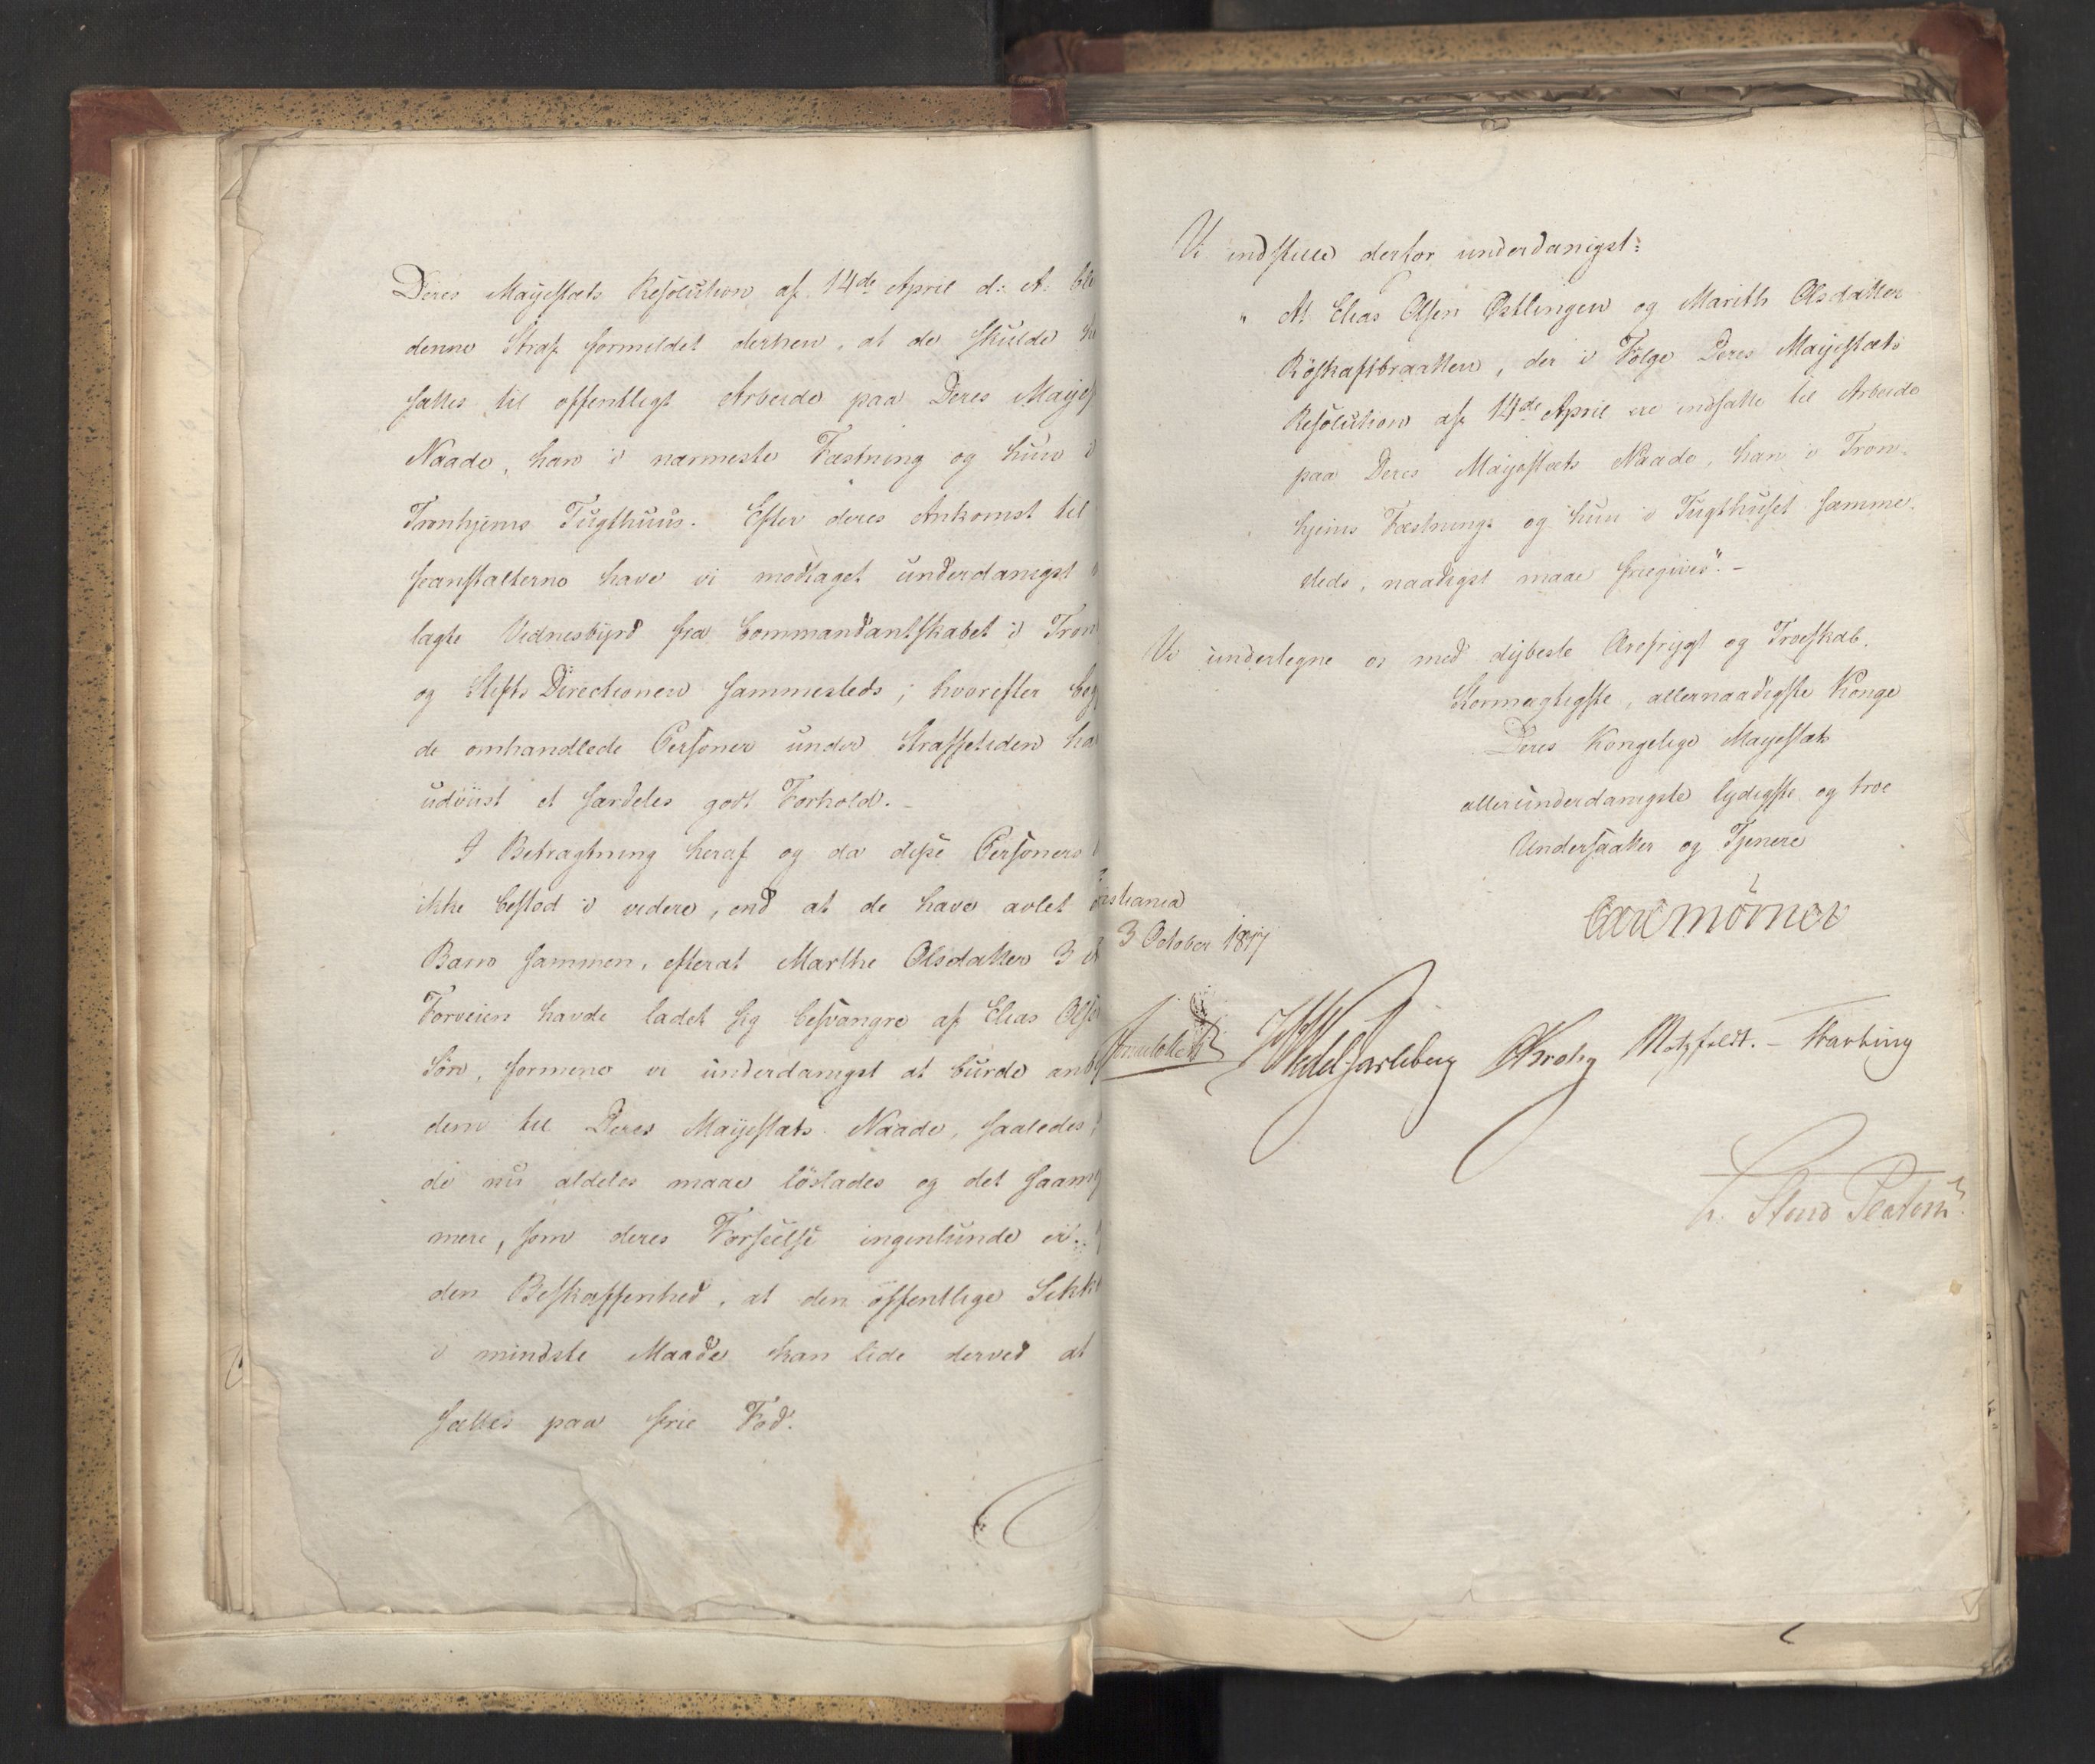 Deres Mayestæts Resolution af 14de April d: A: ble
denne Straf formildet derhen, at de skulde h
sættes til offentligt Arbeide paa Deres Mayes
Naade, han i nærmeste Fæstning og hun i
Tronhjems Tugthuus. Efter deres Ankomst til
feanstalterne have vi modtaget underdanigst
lagte Vidnesbyrd fra Commandantskabet i Tron
og Stifts Directionen sammesteds; hvorefter beg
de omhandlede Personer under Straffetiden ha
udviist et særdeles godt Forhold. -
I Betragtning heraf og da disse Personers
ikke bestod i videre, end at de have avlet
Barn sammen, efterat Marthe Olsdatter 3
Forveien havde ladet sig besvangre af Elias Olse
Søn, formene vi underdanigst at burde anb
dem til Deres Mayestæts Naade, saaledes
de nu aldeles maae løslades og det saam
mere, som deres Forseelse ingenlunde er
den Beskaffenhed, at den offentlige Sikk
i mindste Maade kan lide derved at
sættes paa frie Fod.
Vi indstille derfor underdanigst:
" At Elias Olsen Østlingen og Marith Olsdatter
Röskaftbraatten, der i Følge Deres Mayestæts
Resolution af 14de April ere indsatte til Arbeide
paa Deres Mayestæts Naade, han i Tron-
hjems Fæstning og hun i Tugthuset samme-
steds, naadigst maae friegives". -
Vi undertegne os med dybeste Ærefrygt og Troeskab.
Stormægtigste, allernaadigste Konge
Deres Kongelige Mayestæts
allerunderdanigste lydigste og troe
Undersaatter og Tjenere
istiania
3 October 1817
Carl Mörner
Sommerhielm Wedel Jarlsberg Krohg Motzfeldt. - Harbing
L. Stoud Platou